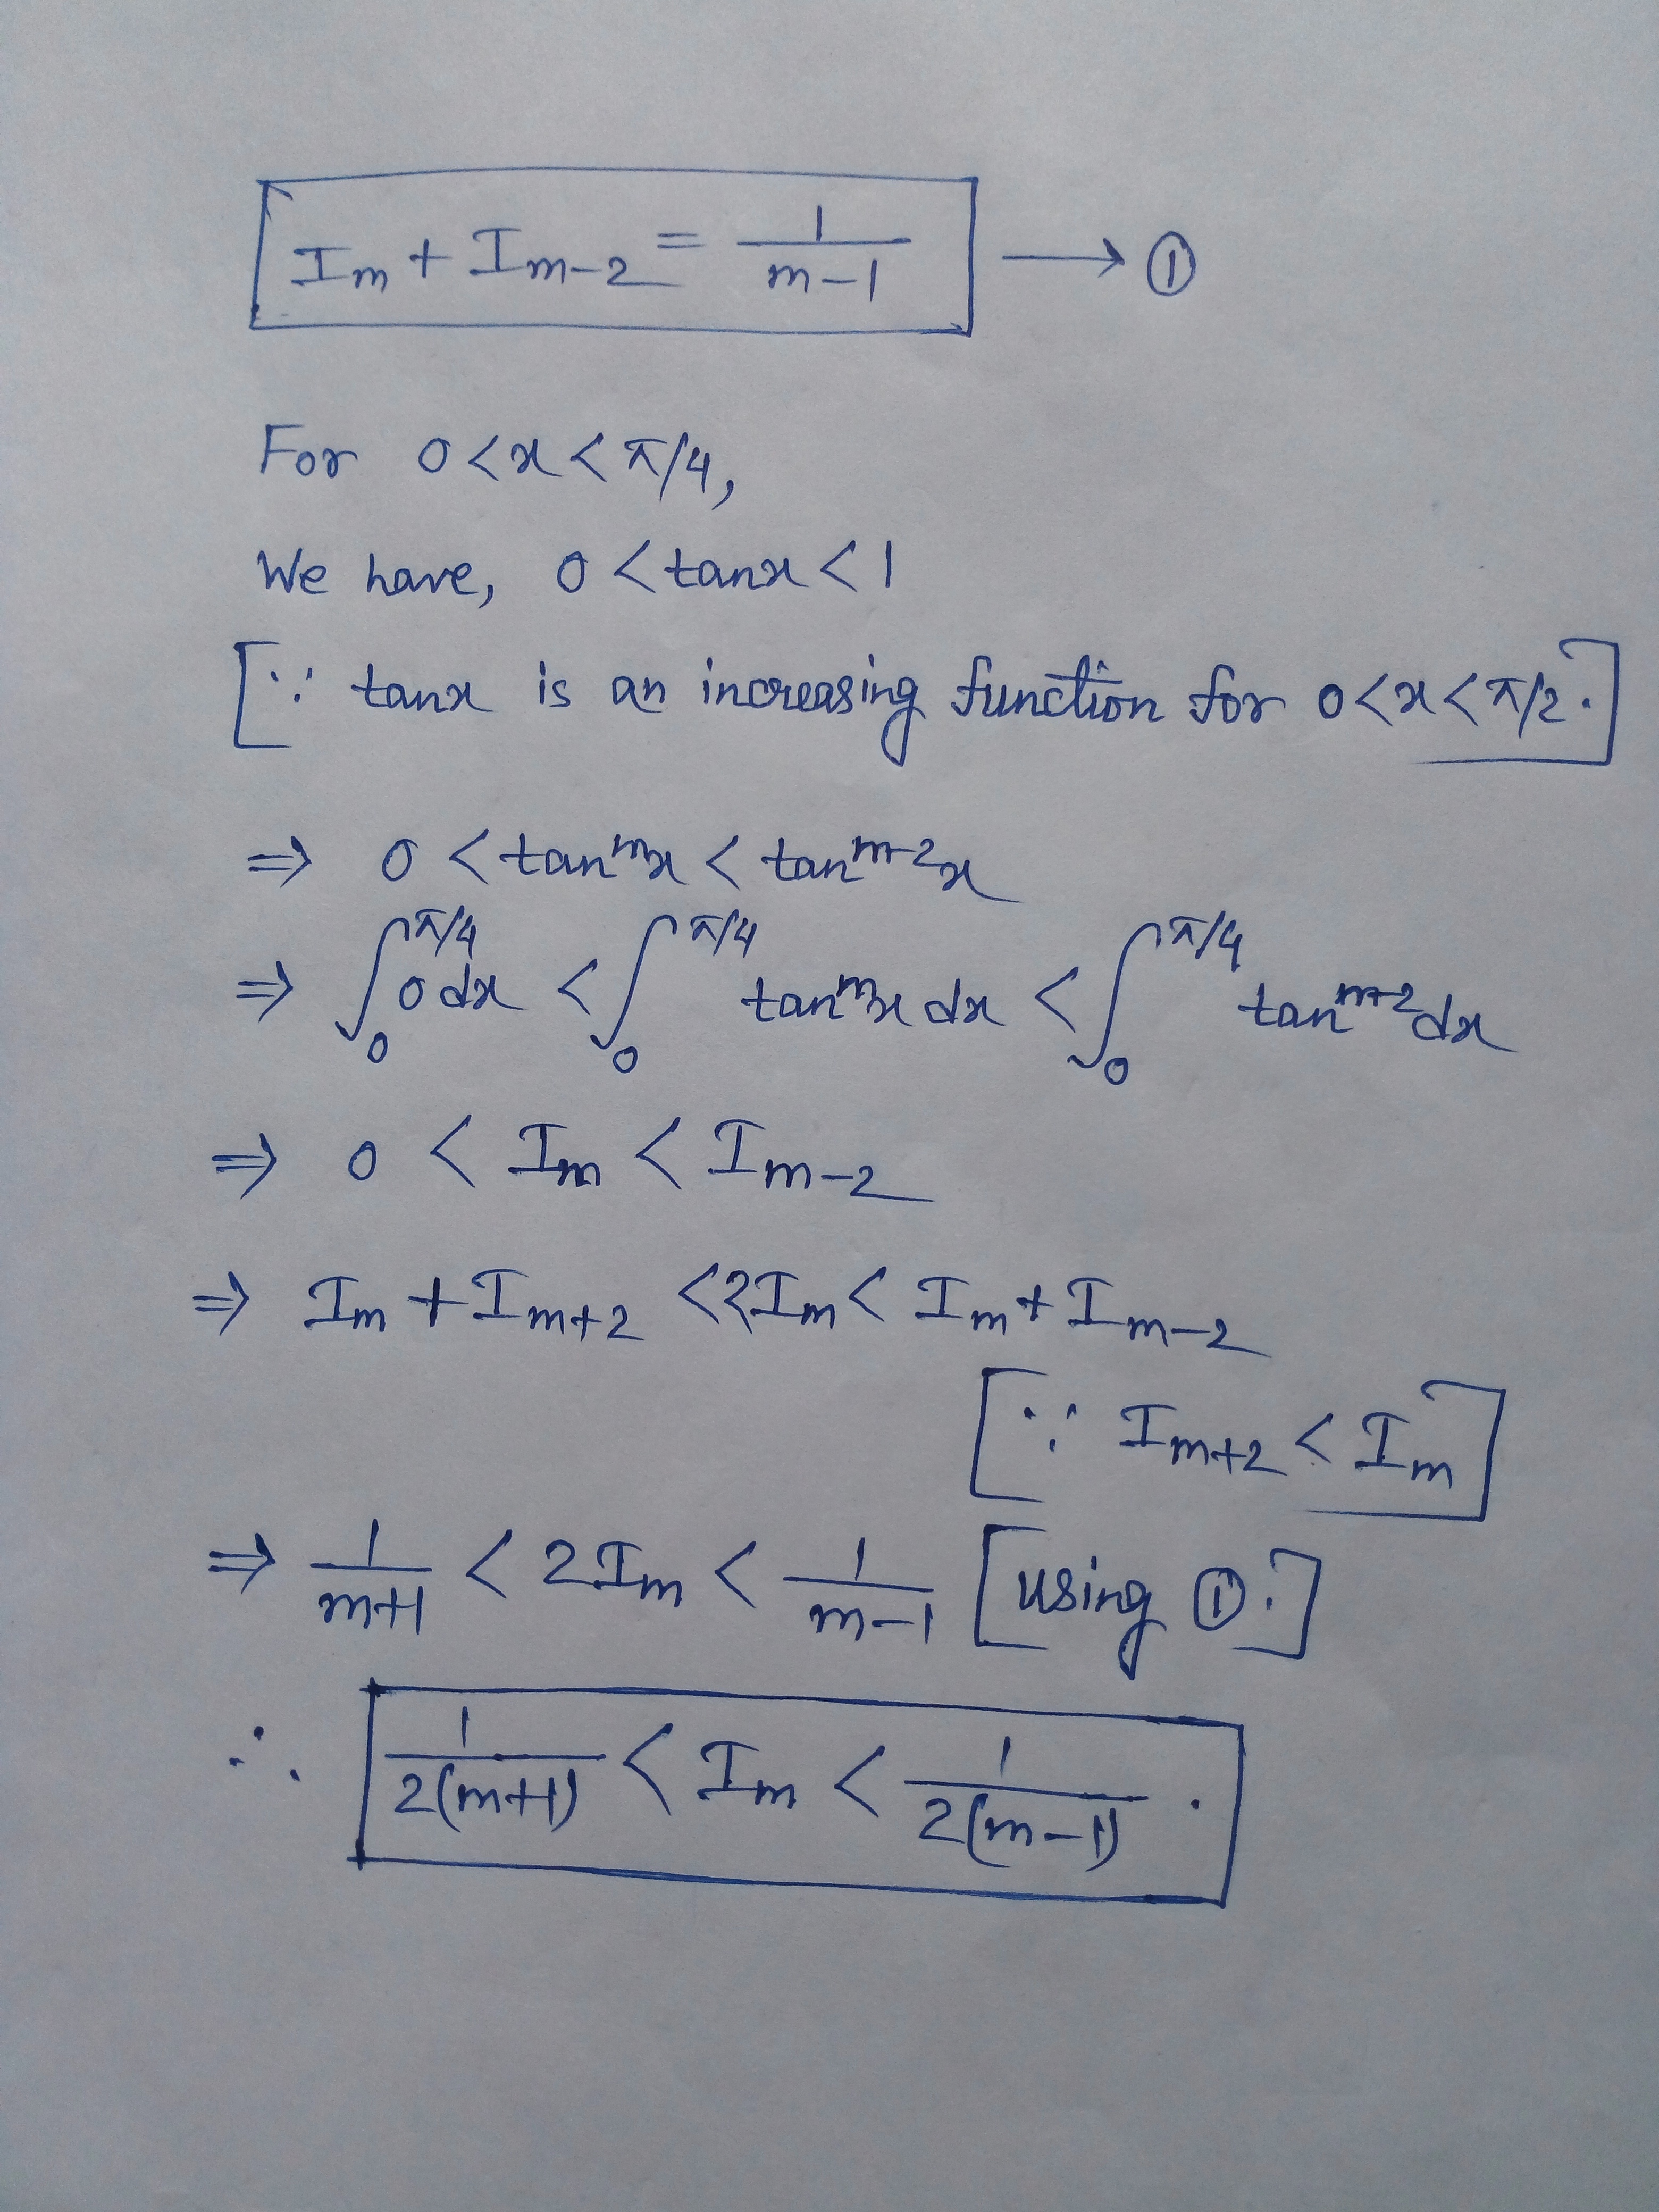 Iₘ + Iₘ₋₂ = 1/(m-1) → ①
For 0 < x < π/4,
We have, 0 < tanx < 1
[∵ tanx is an increasing function for 0 < x < π/2.]
⇒ 0 < tanᵐx < tanᵐ⁻²x
⇒ ∫₀^(π/4) 0 dx < ∫₀^(π/4) tanᵐx dx < ∫₀^(π/4) tanᵐ⁻² dx
⇒ 0 < Iₘ < Iₘ₋₂
⇒ Iₘ + Iₘ₊₂ < 2Iₘ < Iₘ + Iₘ₋₂
[∵ Iₘ₊₂ < Iₘ]
⇒ 1/(m+1) < 2Iₘ < 1/(m-1) [using ①.]
∴ 1/(2(m+1)) < Iₘ < 1/(2(m-1)).